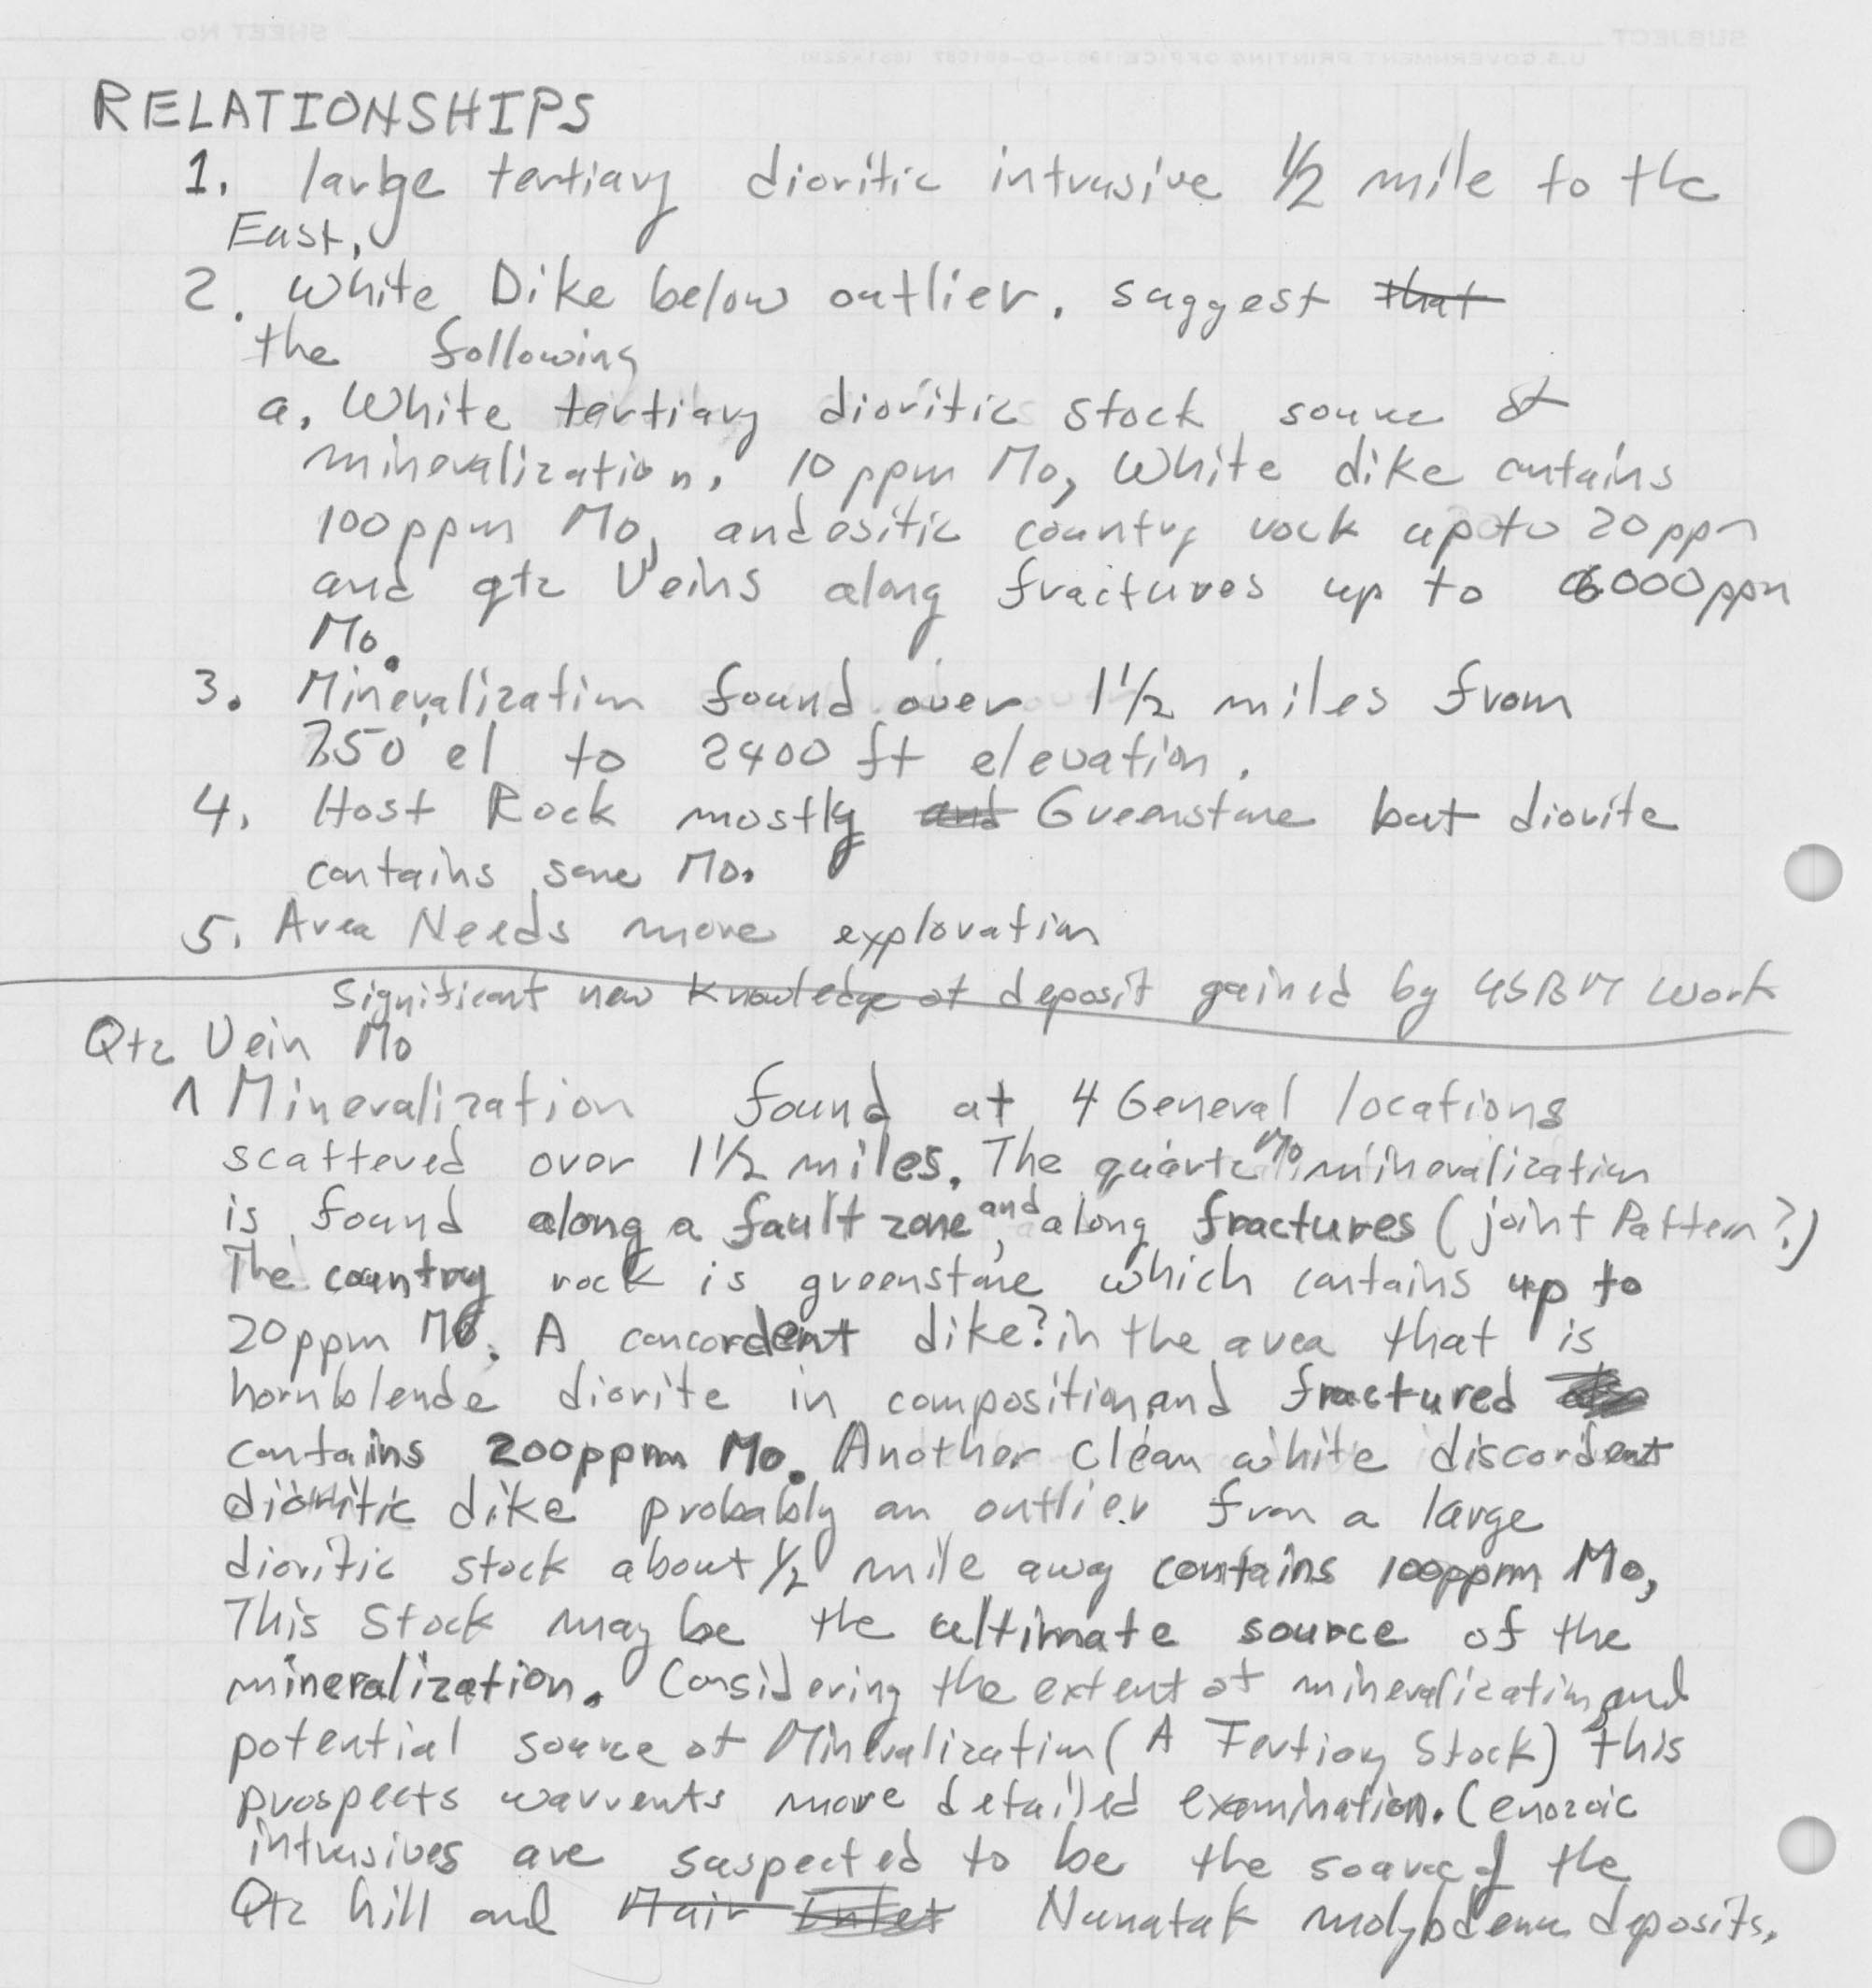 RELATIONSHIPS
1. large tertiary dioritic intrusive 1/2 mile to the
East,
2. White Dike below outlier. suggest that
the following
a. White tertiary dioritic stock source of
mineralization. 10 ppm Mo, White dike contains
100 ppm Mo, andesitic country rock up to 20 ppm
and qtz Veins along fractures up to 6000 ppm
Mo.
3. Mineralization found over 1 1/2 miles from
750 el to 2400 ft elevation.
4. Host Rock mostly and Greenstone but diorite
contains some Mo.
5. Area Needs more exploration
Significant new knowledge of deposit gained by USBM work
Qtz Vein Mo
1 Mineralization found at 4 General locations
scattered over 1 1/2 miles. The quartz Mo mineralization
is found along a fault zone, and along fractures (joint Pattern?)
The country rock is greenstone which contains up to
20 ppm Mo. A concordent dike? in the area that is
hornblende diorite in composition and fractured
contains 200ppm Mo. Another clean white discordent
dioritic dike probably an outlier from a large
dioritic stock about 1/2 mile away contains 100ppm Mo,
This Stock may be the ultimate source of the
mineralization. Considering the extent of mineralization, and
potential source of Mineralization (A Tertiary Stock) this
prospects warrents more detailed examination. Cenozoic
intrusives are suspected to be the source of the
Qtz hill and Muir Inlet Nunatak molybdenum deposits.